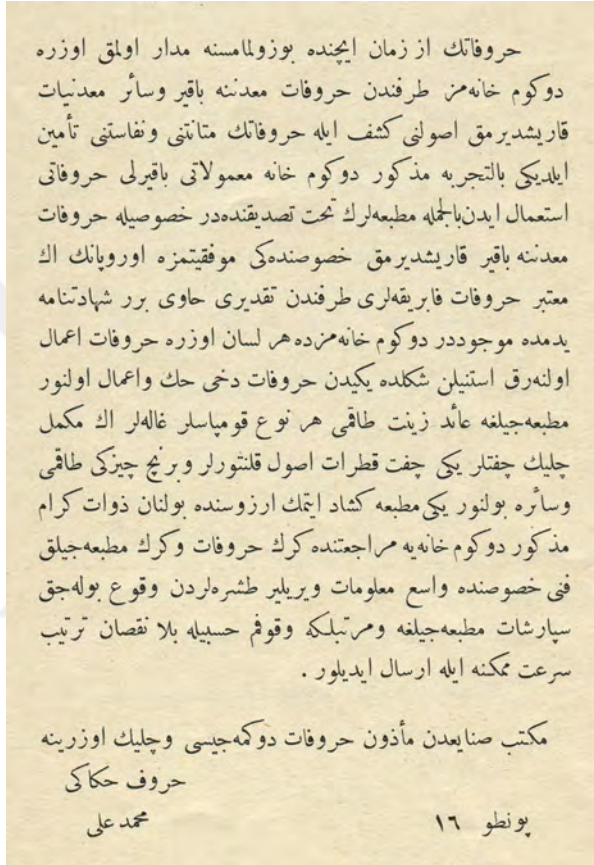 حروفاتك از زمان ایچنده بوزولمامسنه مدار اولمق اوزره
دوكوم خانه‌مز طرفندن حروفات معدننه باقیر وسائر معدنیات
قاریشدیرمق اصولنی كشف ایله حروفاتك متانتنی ونفاستنی تأمین
ایلدیكی بالتجربه مذكور دوكوم خانه معمولاتی باقیرلی حروفاتی
استعمال ایدن بالجمله مطبعه‌لرك تحت تصدیقنده‌در خصوصیله حروفات
معدننه باقیر قاریشدیرمق خصوصنده‌كی موفقیتمزه اوروپانك اك
معتبر حروفات فابریقه‌لری طرفندن تقدیری حاوی برر شهادتنامه
یدمده موجوددر دوكوم خانه‌مزده هر لسان اوزره حروفات اعمال
اولنه‌رق استنیلن شكلده یكیدن حروفات دخی حك واعمال اولنور
مطبعه‌جیلغه عائد زینت طاقمی هر نوع قومپاسلر غاله‌لر اك مكمل
چلیك چفتلر یكی چفت قطرات اصول قلنتورلر وبرنج چیزكی طاقمی
وسائره بولنور یكی مطبعه كشاد ایتمك ارزوسنده بولنان ذوات كرام
مذكور دوكوم خانه‌یه مراجعتنده كرك حروفات وكرك مطبعه‌جیلق
فنی خصوصنده واسع معلومات ویریلیر طشره‌لردن وقوع بوله‌جق
سپارشات مطبعه‌جیلغه ومرتبلكه وقوفم حسبیله بلا نقصان ترتیب
سرعت ممكنه ایله ارسال ایدیلور .
مكتب صنایعدن مأذون حروفات دوكمه‌جیسی وچلیك اوزرینه
حروف حكاكی
پونطو ١٦ محمد علی